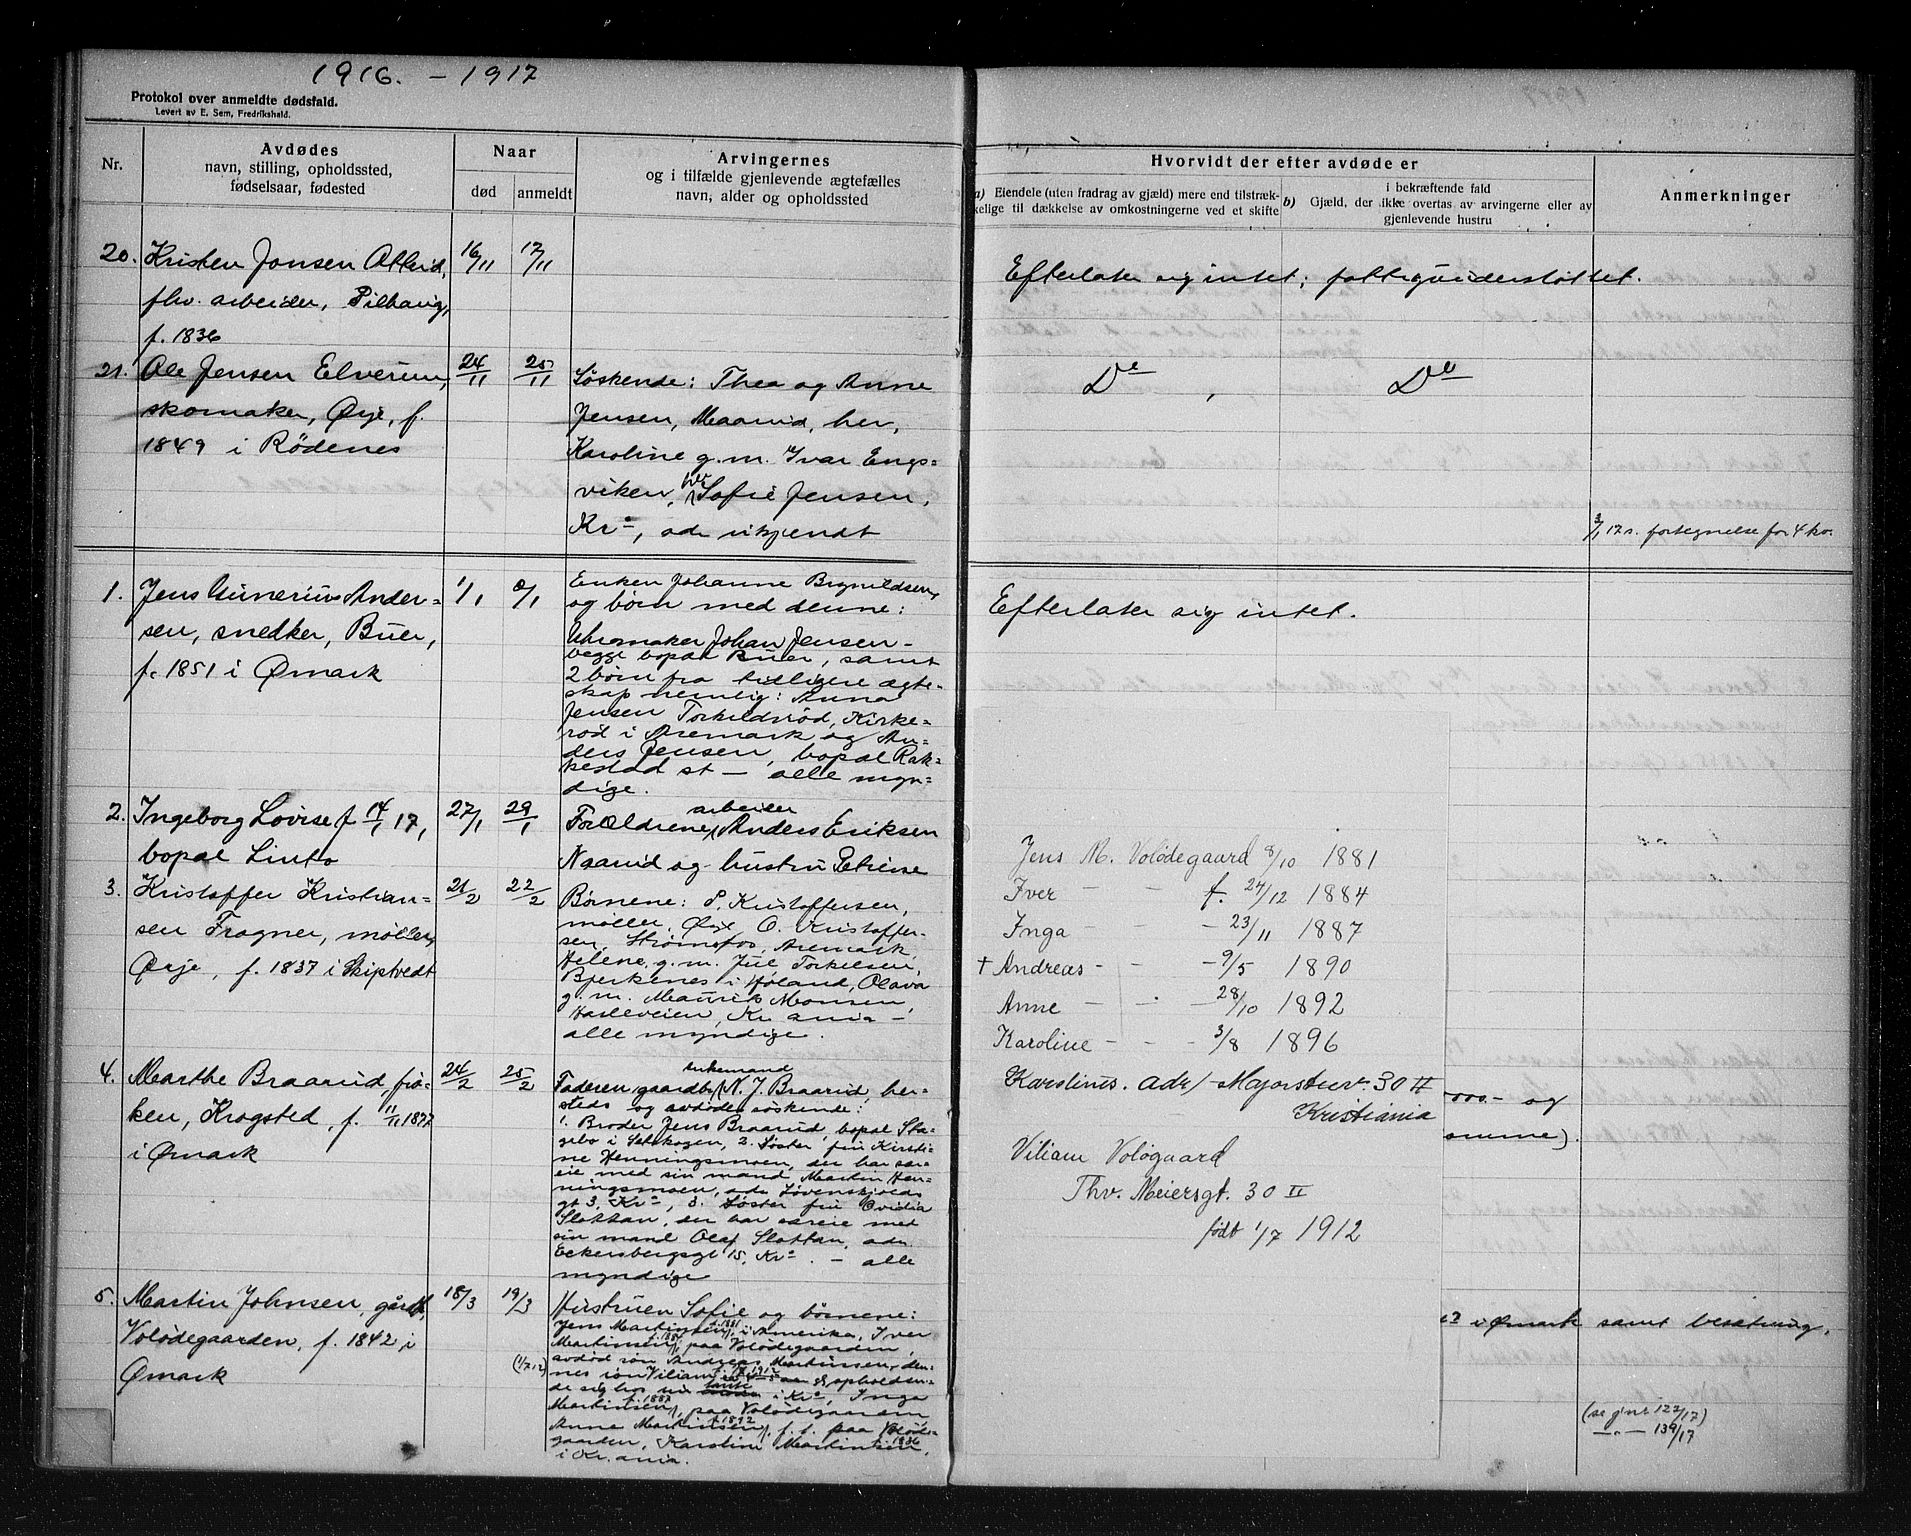 1916. - 1917
Protokol over anmeldte dødsfald.
Levert av E. Sem, Fredrikshald.
Nr.
Avdødes
navn, stilling, opholdssted,
fødselsaar, fødested
Naar
død
anmeldt
Arvingernes
og i tilfælde gjenlevende ægtefælles
navn, alder og opholdssted
Hvorvidt der efter avdøde er
a) Eiendele (uten fradrag av gjæld) mere end tilstræk-
kelige til dækkelse av omkostningerne ved et skifte
b)
i bekræftende fald
Gjæld, der ikke overtas av arvingerne eller av
gjenlevende hustru
Anmerkninger
20. Kristen Jonsen
16/11 17/11
flv. arbeider,
f. 1836
Efterlater sig intet; fattigunderstøttet.
21. Ole Jensen Elverum,
skomaker, Ørje, f.
1849 i Rödenes
24/11 25/11
Søskende: Thea og Anne
Jensen, her,
Karoline g.m. Ivar Engs=
viken, Sofie Jensen,
Kr a, adr ukjendt
Do , Do
3/1 17 s. fortegnelse for 4 kv.
1. Jens Gunerius Ander=
sen, snedker, Buer,
f. 1851 i Ømark
1/1
Enken Johanne Brynildsen,
og børn med denne:
Uhrmaker Johan Jensen -
begge bopæl Buer, samt
2 børn fra tidligere ægte-
skap nemlig: Anna
Jensen Torkildsrød, Kirke=
rød i Aremark og An=
ders Jensen, bopæl Rak=
kestad st - alle myn=
dige.
Efterlater sig intet.
2. Ingeborg Lovise f 14/1 17,
bopæl Linto
27/1 29/1
arbeider
Forældrene Anders Eriksen
og hustru Petrine
3. Kristoffer Kristian-
sen Fragner, møller,
Ørje, f. 1837 i Skiptvedt
21/2 22/2
Børnene: P. Kristoffersen,
møller, Ørje O. Kristoffer-
sen, Strømsfos, Aremark,
Helene, g.m. Jul Torkelsen,
Bjerkenes i Høland, Olava
g. m. Maurits Monsen,
Kr. ania -
alle myndige.
4. Marthe Braarud, frø-
ken, Krogsted, f. 11/11 1877
i Ømark
24/2 25/2
enkemand
Faderen, gaardbr N. J. Braarud, her-
steds og avdødes søskende:
1. Broder Jens Braarud bopæl Sla-
gebo i Setskogen, 2. Søster fru Kirsti-
ne Henningsmoen, der har sær-
eie med sin mand Martin Hen-
ningsmoen, adr. Løvenskjolds
gt 3, Kr a, 3. Søster fru Ovidia
Slottan, der har særeie med
sin mand Olaf Slottan, adr.
Eckersbergsgt 15, Kr a. - alle
myndige
000.- og
omme).
5. Martin Johnsen, gårdb,
Volødegaarden, f. 1842 i
Ømark
18/3 19/3
(1/7 12)
Hustruen Sofie og børnene:
f. 1881
Jens Martinsen, i Amerika, Iver
f. 1884
Martinsen, paa Volødegaarden,
avdød søn Andreas Martinsen, den-
nes søn Viliam f. 1/7 1912 opholden-
de sig hos tante i Kr a, Inga
f. 1887
Martinsen, paa Volødegaarden
f. 1892
Anne Martinsen, f. t. paa Volød-
gaarden, Karoline Martinsen, f. 1896
i Kr.ania.
i Ømark samt besætning.
(se g.nr 122/17)
-"- 139/17
Jens M. Volødegaard 8/10 1881
Iver - - f. 27/12 1884
Inga - - 23/11 1887
+ Andreas - - 9/5 1890
Anne - - 28/10 1892
Karoline - - 3/8 1896
Karolines. adr/ - Majorstuv. 30 II
Kristiania
Viliam Vologaard
Thv. Meiersgt. 30 II
født 1/7 1912